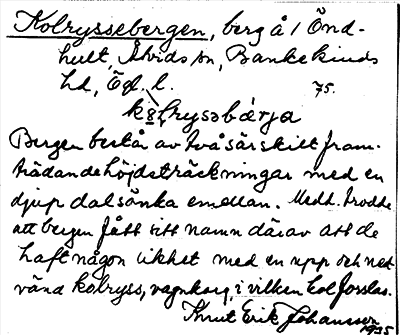 Kolryssebergen, berg å 1 Önd-
hult, Åtvids sn, Bankekinds
hd, Ög. l. 75.
kålrysabärja
Bergen består av två särskilt fram-
trädande höjdsträckningar med en
djup dalsänka emellan. Medd. trodde
att bergen fått sitt namn därav att de
haft någon likhet med en upp och ned
vänd kolryss, vagnkorg, i vilken kol forslas.
Knut Erik Johansson
1935